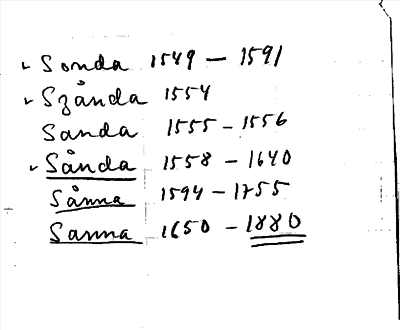 ✓ Sonda 1549 – 1591
✓ Szånda 1554
Sanda 1555 – 1556
✓ Sånda 1558 – 1640
Sånna 1594 – 1755
Sanna 1650 – 1880